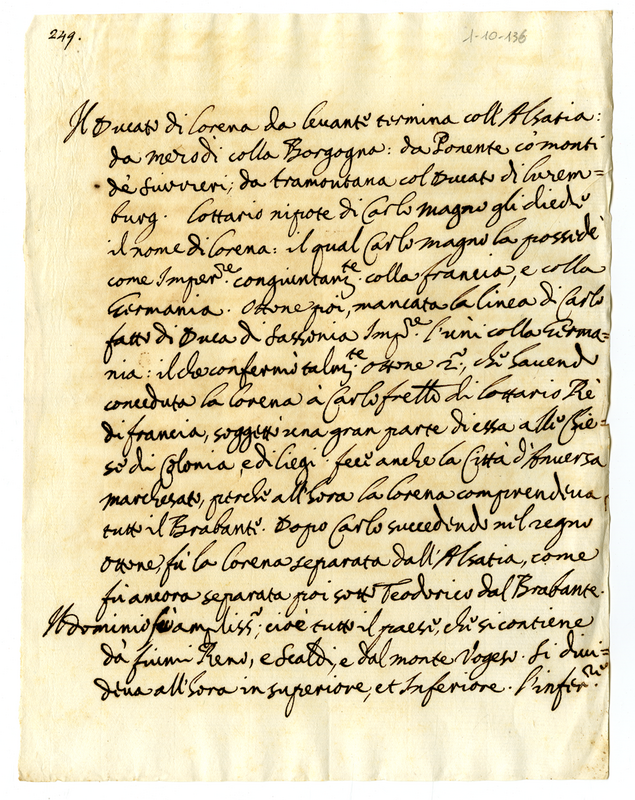 249.
1-10-136
Il Ducato di Lorena da levante termina coll'Alsatia:
da mezodi colla Borgogna: da Ponente co' monti
de' Suvieri; da tramontana col Ducato di Lurem=
burg. Lottario nipote di Carlo magno gli diede
il nome di Lorena: il qual Carlo magno la possedè
come Imper.re congiuntam.te colla francia, e colla
Germania. Ottone poi, mancata la linea di Carlo
fatto di Duca di Sassonia Imp.re l'unì colla Germa=
nia: il che confermò talm.te Ottone 2.o, che havendo
conceduta la Lorena à Carlo frēllo di Lottario Rè
di francia, soggettò una gran parte di essa alle Chie=
se di Colonia, e di liegi. fece anche la Città d'Anversa
marchesato, perche all'hora la Lorena comprendeva
tutto il Brabante. Dopo Carlo succedendo nel regno
Ottone, fù la Lorena separata dall'Alsatia, come
fù ancora separata poi sotto Teodorico dal Brabante.
Il dominio fù ampliss.o; cioè tutto il paese, che si contiene
dà fiumi Reno, e Scaldi, e dal monte Vogeso. Si divi=
deva all'hora in superiore, et Inferiore. l'infer.re